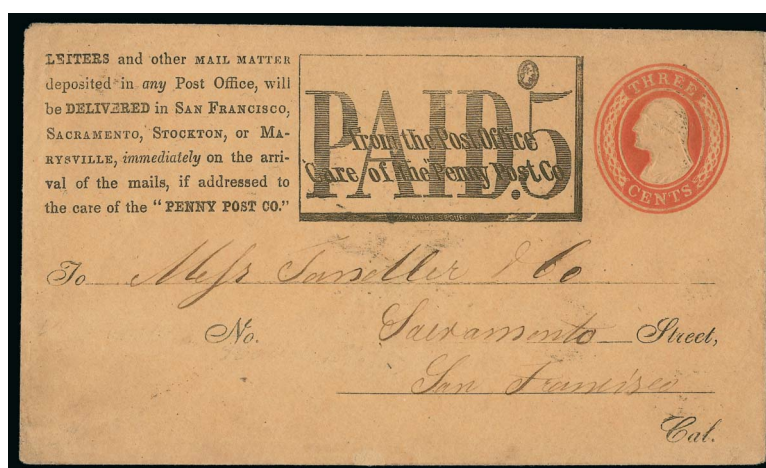 LETTERS and other MAIL MATTER
deposited in any Post Office, will
be DELIVERED in SAN FRANCISCO,
SACRAMENTO, STOCKTON, or MA-
RYSVILLE, immediately on the arri-
val of the mails, if addressed to
the care of the "PENNY POST CO."
PAID.5
from the Post Office
Care of the "Penny Post Co
THREE
CENTS
To Messr & Co
No. Sacramento Street,
San Francisco
Cal.